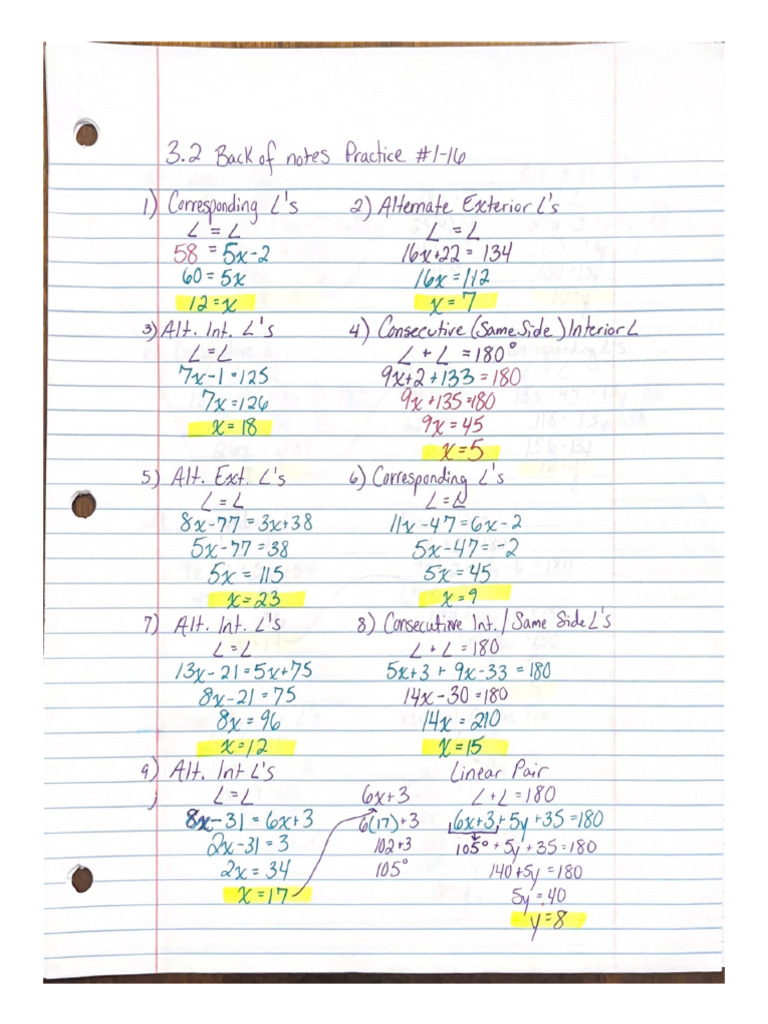 3.2 Back of notes Practice #1-16
1) Corresponding ∠'s
∠ = ∠
58 = 5x-2
60 = 5x
12 = x
2) Alternate Exterior ∠'s
∠ = ∠
16x+22 = 134
16x = 112
x = 7
3) Alt. Int. ∠'s
∠ = ∠
7x-1 = 125
7x = 126
x = 18
4) Consecutive (Same Side) Interior ∠
∠ + ∠ = 180°
9x+2+133 = 180
9x+135 = 180
9x = 45
x = 5
5) Alt. Ext. ∠'s
∠ = ∠
8x-77 = 3x+38
5x-77 = 38
5x = 115
x = 23
6) Corresponding ∠'s
∠ = ∠
11x-47 = 6x-2
5x-47 = -2
5x = 45
x = 9
7) Alt. Int. ∠'s
∠ = ∠
13x-21 = 5x+75
8x-21 = 75
8x = 96
x = 12
8) Consecutive Int./Same Side ∠'s
∠ + ∠ = 180
5x+3 + 9x-33 = 180
14x-30 = 180
14x = 210
x = 15
9) Alt. Int ∠'s
∠ = ∠
8x-31 = 6x+3
2x-31 = 3
2x = 34
x = 17
6x+3
6(17)+3
102+3
105°
Linear Pair
∠+∠ = 180
6x+3+5y+35 = 180
105° + 5y + 35 = 180
140+5y = 180
5y = 40
y = 8